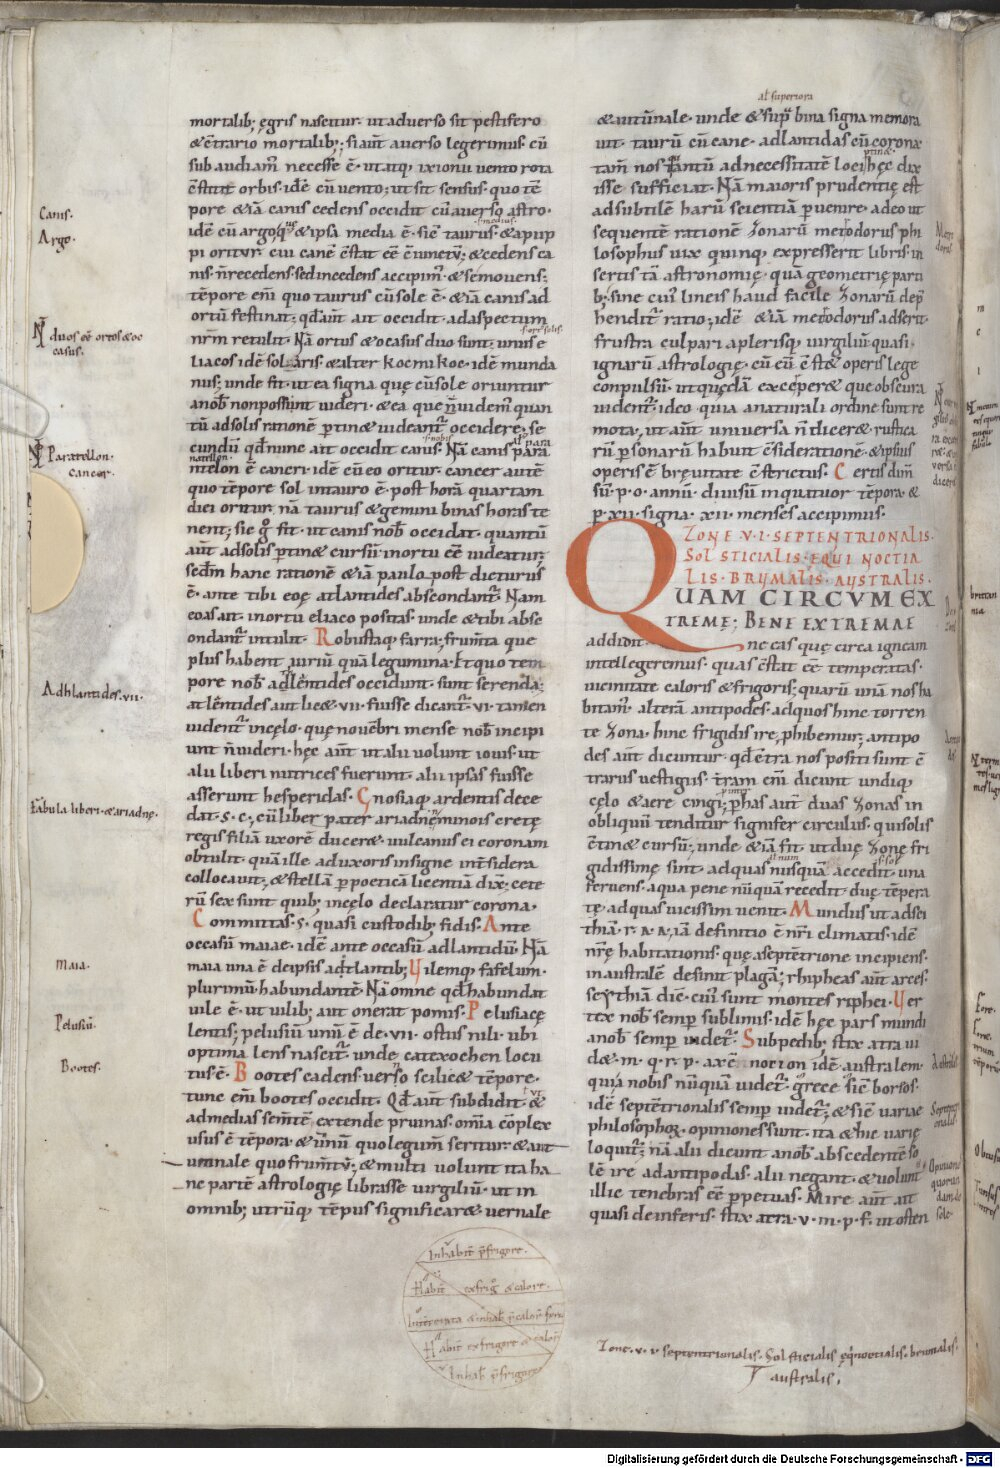 mortalib; ęgris nascitur. ut aduerso sit pestifero
& c̄trario mortalib;; si aut̄ auerso legerimus. cū
sub audiam̄ necesse ē. ut atq; ixionii uento rota
c̄stitit orbis. idē cū uento; ut sit sensus. quo tē
pore & iā canis cedens occidit cū auerso astro.
idē cū argo; & ipsa media ē. sic̄ taurus. & a pup
pi oritur. cui canē c̄stat eē
nis. n̄ recedens. sed incedens accipim̄. & semouens;
tēpore eni quo taurus cū sole ē. & iā canis ad
ortū festinat; qd aut̄ ait occidit. ad aspectum
nr̄m retulit. Nā ortus & ocasus duo sunt; unus e
liacos idē solaris. & alter kocmikoc. idē munda
nus; unde fit. ut ea signa quę cū sole oriuntur
anob non possunt uideri. & ea que
tū ad solis rationē pertin& uideant̄ occidere; se
cundū qd nunc ait occidit canis. Nā canis para
ntelon ē cancri. idē cū eo oritur. cancer autē
quo tēpore sol in tauro ē. post horā quartam
diei oritur. nā taurus & gemini binas horas te
nent; sic g fit. ut canis nob occidat. quantū
aut̄ ad solis pertin& cursū. in ortu eē uideatur;
sed hanc rationē & iā paulo post dicturus
ē. ante tibi eoę atlantides abscondant̄. Nam
eoas ait. inortu eliaco positas. unde & tibi absc
ondant̄ intulit. Robustaq; farra; frum̄ta que
plus habent uiriū quā legumina. Et quo tem
pore nob adlentides occidunt. sunt serenda;
atlentides aut̄ licę. vii. fuisse dicant̄. vi. tamen
uident̄ in cęlo. quę nouēbri mense nob incipi
unt n̄ uideri. hęc aut̄ ut alii uolunt iouis. ut
alii liberi nutrices fuerunt. alii ipsas fuisse
asserunt hesperidas. Gnosiaq; ardentis dece
dat. s. c.; cū liber pater ariadnē minois cretę
regis filiā uxorē ducer&. uulcanus ei coronam
obtulit. quā ille ad uxoris insigne int̄ sidera
collocauit; & stellā p poeticā licentiā dix; cete
rū sex sunt quib; in cęlo declaratur corona.
Committas. s. quasi custodib; fidis. Ante
occasū maiae. idē ante occasū adlantidū. Nā
maia una ē de ipsis adtlantib; Uilemq; fafelum.
plurimū habundantē. Nā omne qd habundat
uile ē. ut uilib; aut onerat pomis. Pelusiacę
lentis; pelusiū unū ē de. vii. ostiis nili. ubi
optima lens nascit̄. unde catexochen locu
tus ē. Bootes cadens. uerso scilic& tēpore.
tunc eni bootes occidit. Qd aut̄ subdidit. &
ad medias sem̄tē extende pruinas. omīa cōplex
usus ē tēpora. & uernū quo legum̄ seritur. & aut
umnale quo frum̄tū; & multi uolunt ita ha
nc partē astrologię librasse uirgiliū. ut in
omnib; utrūq; tēpus significar& uernale
al superiora
& autūnale. unde & sup bina signa memora
uit. taurū cū cane. adlantidas cū corona
tam̄ nos ad necessitatē loci hęc dix
isse sufficiat. Nā maioris prudentię est
ad subtilē harū scientiā peruenire. adeo ut
sequentē rationē zonarū metodorus phi
losophus uix quinq; expresserit libris. in
sertis tā astronomię. quā geometrię parti
b; sine cui lineis haud facile zonarū dep
hendit̄ ratio; idē & iā metodorus adserit.
frustra culpari a plerisq; uirgiliū. quasi
ignarū astrologię. cū eū c̄st& operis lege
conpulsū. ut quędā exceper& que obscura
uident̄. ideo quia a naturali ordine sunt re
mota. ut aut̄ uniuersa n̄ dicer& rustica
rū psonarū habuit c̄siderationē. & ipsius
operis ē breuitate c̄strictus. Certis dim̄
sū. p. o. annū diuisū in quatuor tēpora. &
p. xii. signa. xii. menses accipimus.
ZONE. V. I. SEPTENTRIONALIS.
SOLSTICIALIS. EQUI NOCTIA
LIS. BRUMALIS. AUSTRALIS.
QUAM CIRCUM EX
TREMĘ; BENE EXTREMAE
addidit. ne eas quę circa igneam
intellegeremus. quas c̄stat eē temperatas.
uicinitate caloris & frigoris; quarū unā nos ha
bitam̄. alterā antipodes. ad quos hinc torren
te zona. hinc frigidis ire phibemur; antipo
des aut̄ dicuntur. qd c̄tra nos positi sunt c̄
trariis uestigiis. tram eni dicunt undiq;
cęlo & aere cingi; p has aut̄ duas zonas in
obliquū tenditur signifer circulus. qui solis
c̄tin& cursū; unde & iā fit. ut duę zonę fri
gidissimę sint. ad quas nusquā accedit. una
feruens. a qua pene nūquā recedit. duę tēpera
tę. ad quas uicissim uenit. Mundus ut ad sci
thiā. r. a. a; iā definitio ē nr̄i climatis. idē
nr̄ę habitationis. quę a septētrione incipiens.
in australē desinit plagā; rhipheas aut̄ arces.
scythiā dic̄. cui sunt montes riphei. Uer
tex nob semp sublimis. idē hęc pars mundi
anob semp uidet̄. Sub pedib; stix atra ui
d&. m. q. r. p. axē notion idē australem.
quia nobis nūquā uidet̄; gręce sic̄ borsos.
idē septētrionalis semp uidet̄; & sic̄ uariae
philosophoꝝ opiniones sunt. ita & hic uarię
loquit̄; nā alii dicunt anob abscedentē so
lē ire ad antipodas. alii negant. & uolunt
illic tenebras eē ppetuas. Mire aut̄ ait
quasi de inferis. stix atra. v. m. p. f. ut osten
Canis.
Argo.
duos eē ortos & oc
casus.
Paratellon.
cancer.
Adhlantides. vii.
Fabula liberi. & ariadnę.
Maia.
Pelusiū.
Bootes.
Inhabit p frigore.
Habit ex frig & calore.
Habit ex frigore & calor
Inhab p frigore
Zone. v. v septentrionalis. Solsticialis ęqnoctialis. brumalis.
australis.
Digitalisierung gefördert durch die Deutsche Forschungsgemeinschaft - DFG